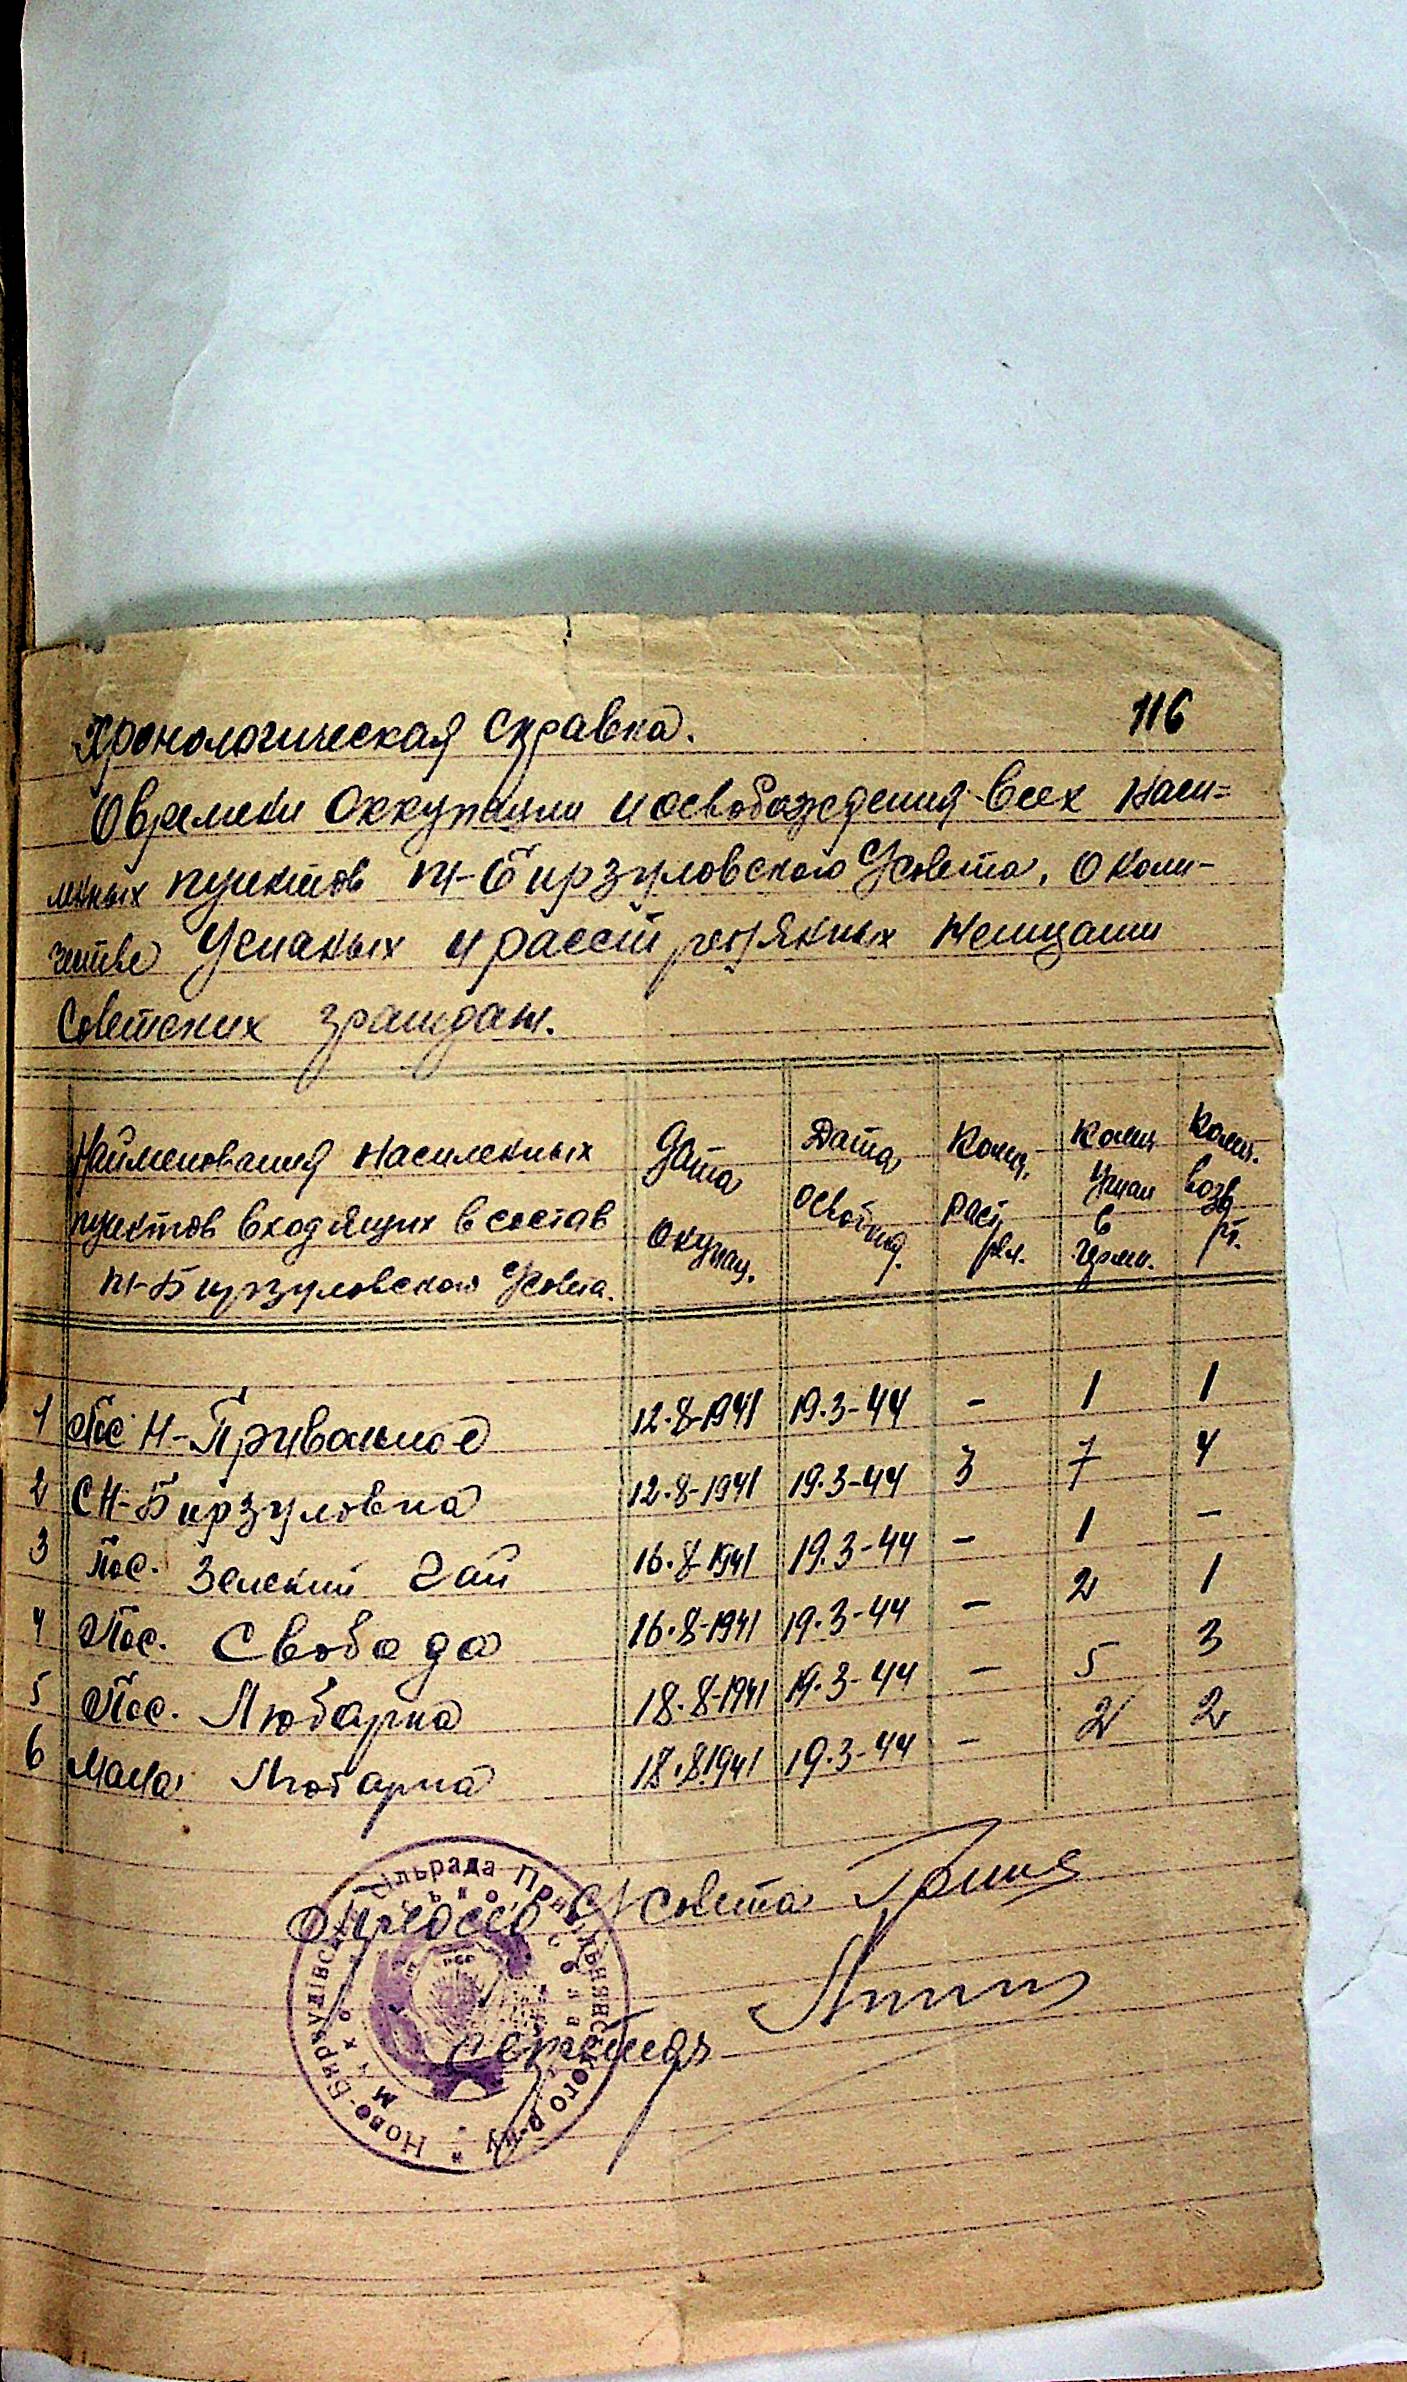 116
Хронологическая Справка.
О времени Оккупации и освобождения всех наси=
ленных пунктов Н-Бирзуловского С/совета, О коли-
честве Угнаных и расстрелянных Немцами
Советских граждан.
Наименования Населенных пунктов входящих в состав Н-Бирзуловского С/совета. | Дата Окупац. | Дата освобожд. | Колич. расст рел. | Колич Угнан в Герм. | Колич. возв рт.
1 Пос Н-Привольное 12.8-1941 19.3-44 - 1 1
2 С Н-Бирзуловка 12.8-1941 19.3-44 3 7 4
3 Пос. Зелений Гай 16.8-1941 19.3-44 - 1 -
4 Пос. Свобода 16.8-1941 19.3-44 - 2 1
5 Пос. Любарка 18.8-1941 19.3-44 - 5 3
6 Мала Любарка 18.8.1941 19.3-44 - 2 2
Председ С/совета
Секретарь
Ново-Бирзулівська Сільрада Привільнянського р-ну